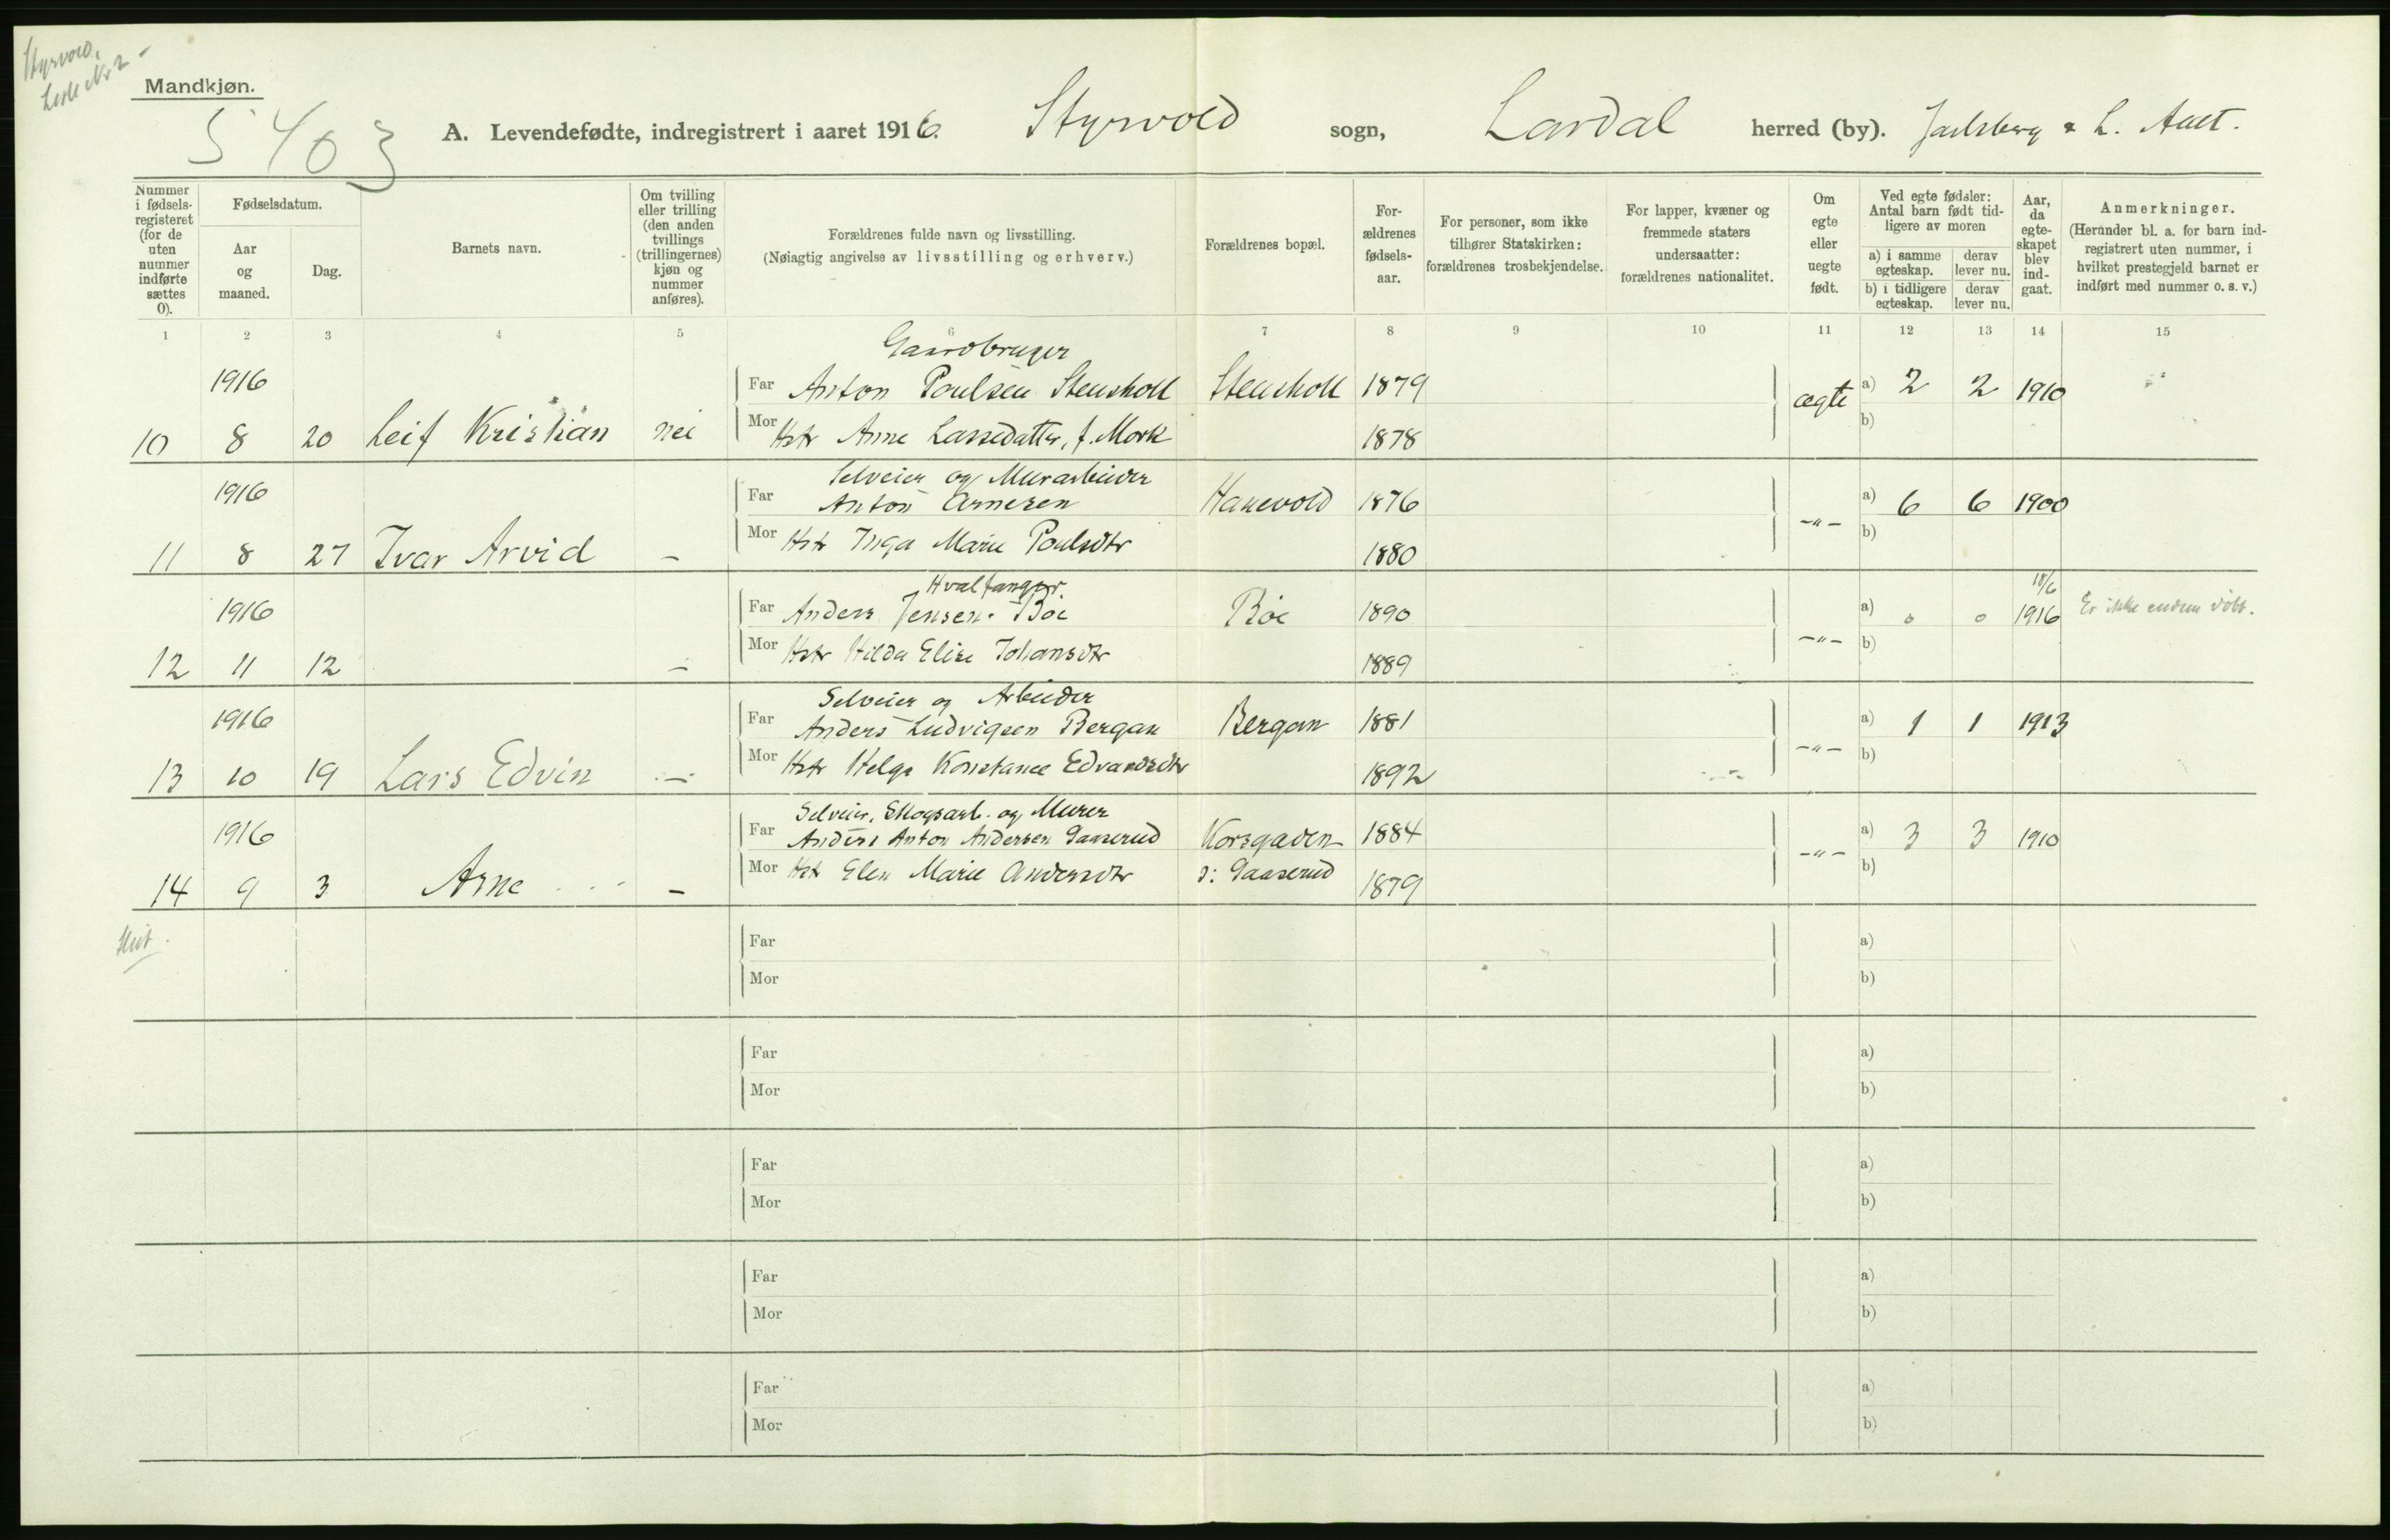 Styrvold,
Liste Nr 2 -
Mandkjøn.
5403
A. Levendefødte, indregistrert i aaret 1916. Styrvold sogn, Lardal herred (by). Jarlsberg & L. Amt.
Nummer i fødsels-registeret (for de uten nummer indførte sættes 0).
Fødselsdatum.
Aar og maaned.
Dag.
Barnets navn.
Om tvilling eller trilling (den anden tvillings (trillingernes) kjøn og nummer anføres).
Forældrenes fulde navn og livsstilling.
(Nøiagtig angivelse av livsstilling og erhverv.)
Forældrenes bopæl.
For-ældrenes fødsels-aar.
For personer, som ikke tilhører Statskirken: forældrenes trosbekjendelse.
For lapper, kvæner og fremmede staters undersaatter: forældrenes nationalitet.
Om egte eller uegte født.
Ved egte fødsler: Antal barn født tid-ligere av moren
a) i samme egteskap.
derav lever nu.
b) i tidligere egteskap.
derav lever nu.
Aar, da egte-skapet blev ind-gaat.
Anmerkninger.
(Herunder bl. a. for barn ind-registrert uten nummer, i hvilket prestegjeld barnet er indført med nummer o. s. v.)
1 2 3 4 5 6 7 8 9 10 11 12 13 14 15
Gaardbruger
1916 Far Anton Poulsen Stensholt Stensholt 1879 ægte a) 2 2 1910
10 8 20 Leif Kristian nei Mor Hstr Anne Larsedatter, f. Mork 1878 b)
Selveier og Murarbeider
1916 Far Anton Arnesen Hanevold 1876 -"- a) 6 6 1900
11 8 27 Ivar Arvid - Mor Hstr Inga Marie Poulsdtr 1880 b)
Hvalfanger. 18/6
1916 Far Anders Jensen Bøe Bøe 1890 -"- a) 0 0 1916 Er ikke endnu døbt.
12 11 12 - Mor Hstr Hilda Elise Johansdtr 1889 b)
Selveier og Arbeider
1916 Far Anders Ludvigsen Bergan Bergan 1881 -"- a) 1 1 1913
13 10 19 Lars Edvin - Mor Hstr Helga Konstance Edvardsdtr 1892 b)
Selveier, Skogsarb. og Murer
1916 Far Anders Anton Andersen Gaaserud Korsgaden 1884 -"- a) 3 3 1910
14 9 3 Arne - Mor Hst Elen Marie Andersdtr s: Gaaserud 1879 b)
Slut.
Far a)
Mor b)
Far a)
Mor b)
Far a)
Mor b)
Far a)
Mor b)
Far a)
Mor b)